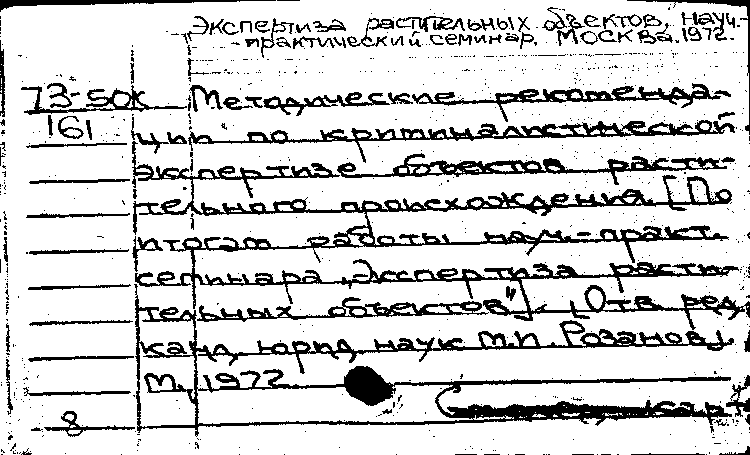 Экспертиза растительных объектов, науч.-
-практический семинар. Москва. 1972.
73-50к Методические рекоменда-
161 ции по криминалистической
экспертизе объектов расти-
тельного происхождения. [По
итогам работы науч.-практ.
семинара „Экспертиза расти-
тельных объектов"]. [Отв. ред.
канд. юрид. наук М.П. Розанов].
М., 1972.
8